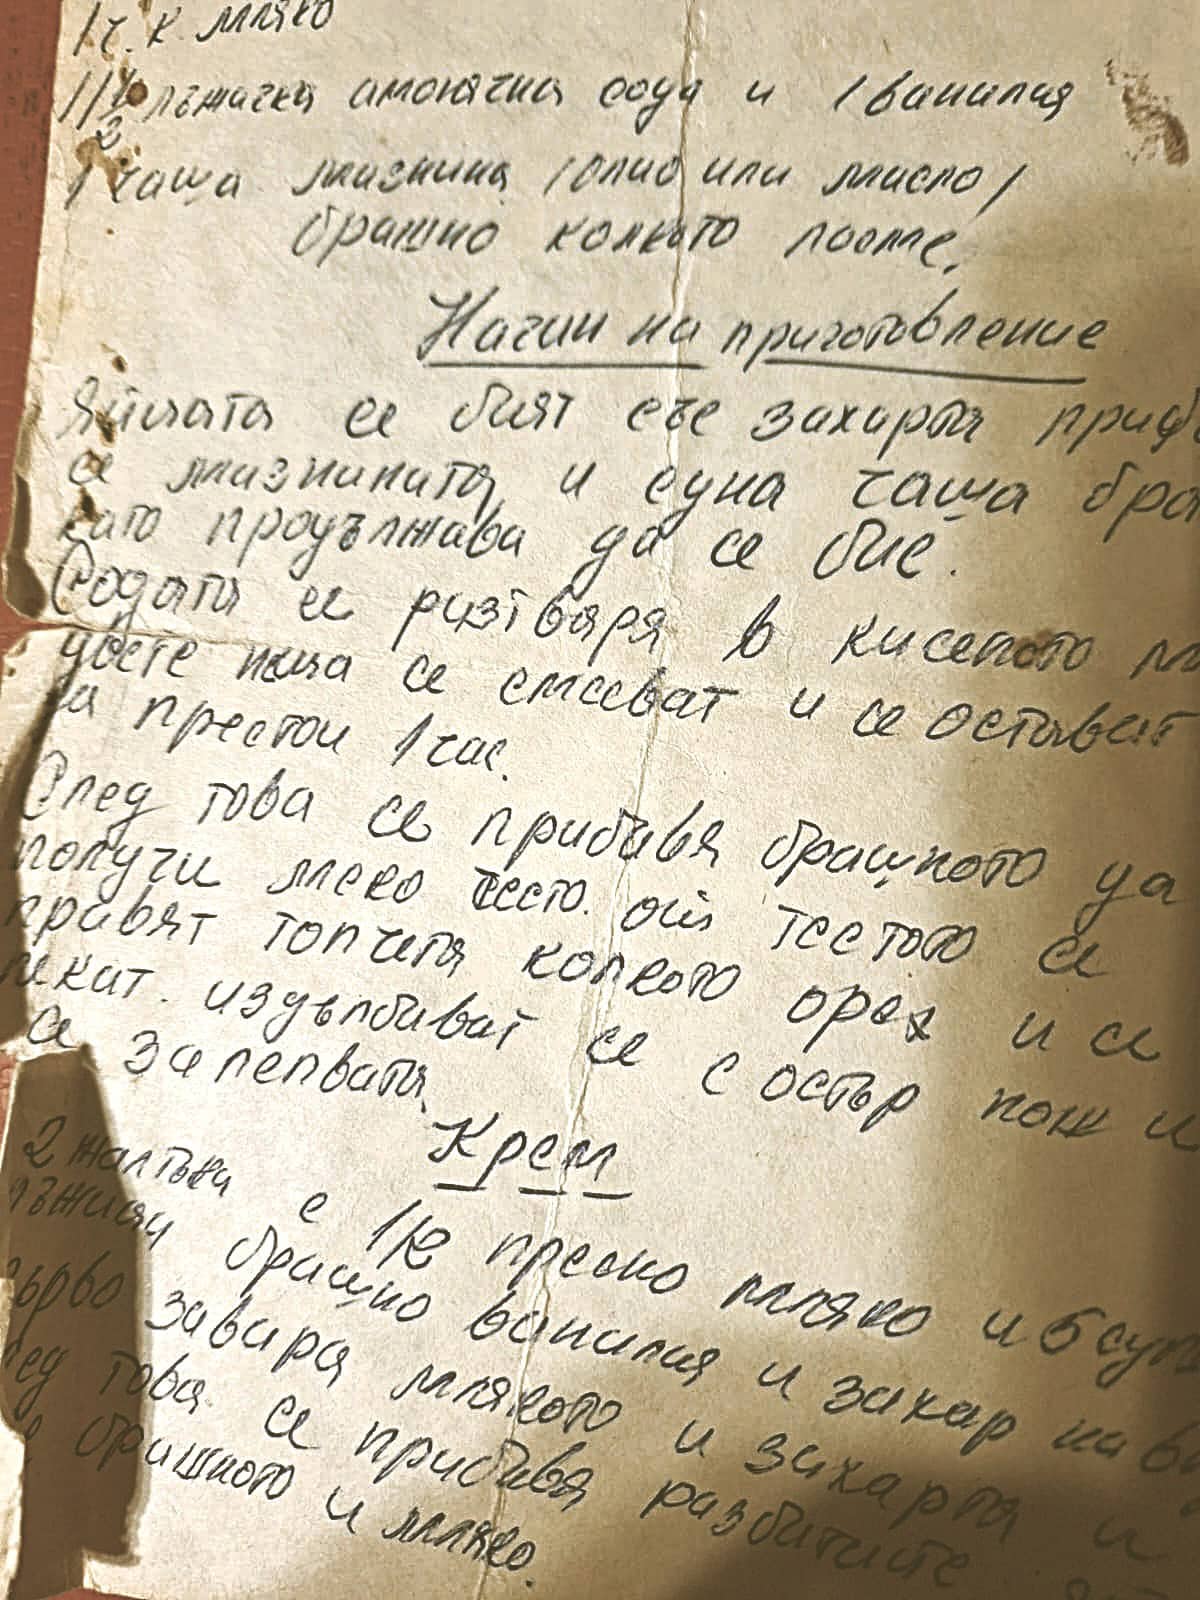 1 ч. к. мляко
1 1/2 лъжичка амонячна сода и 1 ванилия
1 чаша мазнина /олио или масло/
брашно колкото поеме.
Начин на приготовление
Яйцата се бият със захарта приб
се мазнината и една чаша бра
като продължава да се бие.
Содата се разтваря в киселото м
двете неща се смесват и се оставят
да престои 1 час.
След това се прибавя брашното да
получи меко тесто. от тестото се
правят топчета колкото орех и се
пекат. издълбават се с остър нож и
се залепват.
Крем
2 жълтъка с 1/2 прясно мляко и 5 суп
лъжици брашно ванилия и захар на в
първо заваря млякото и захарта и
лед това се прибавя разбитите
брашното и мляко.